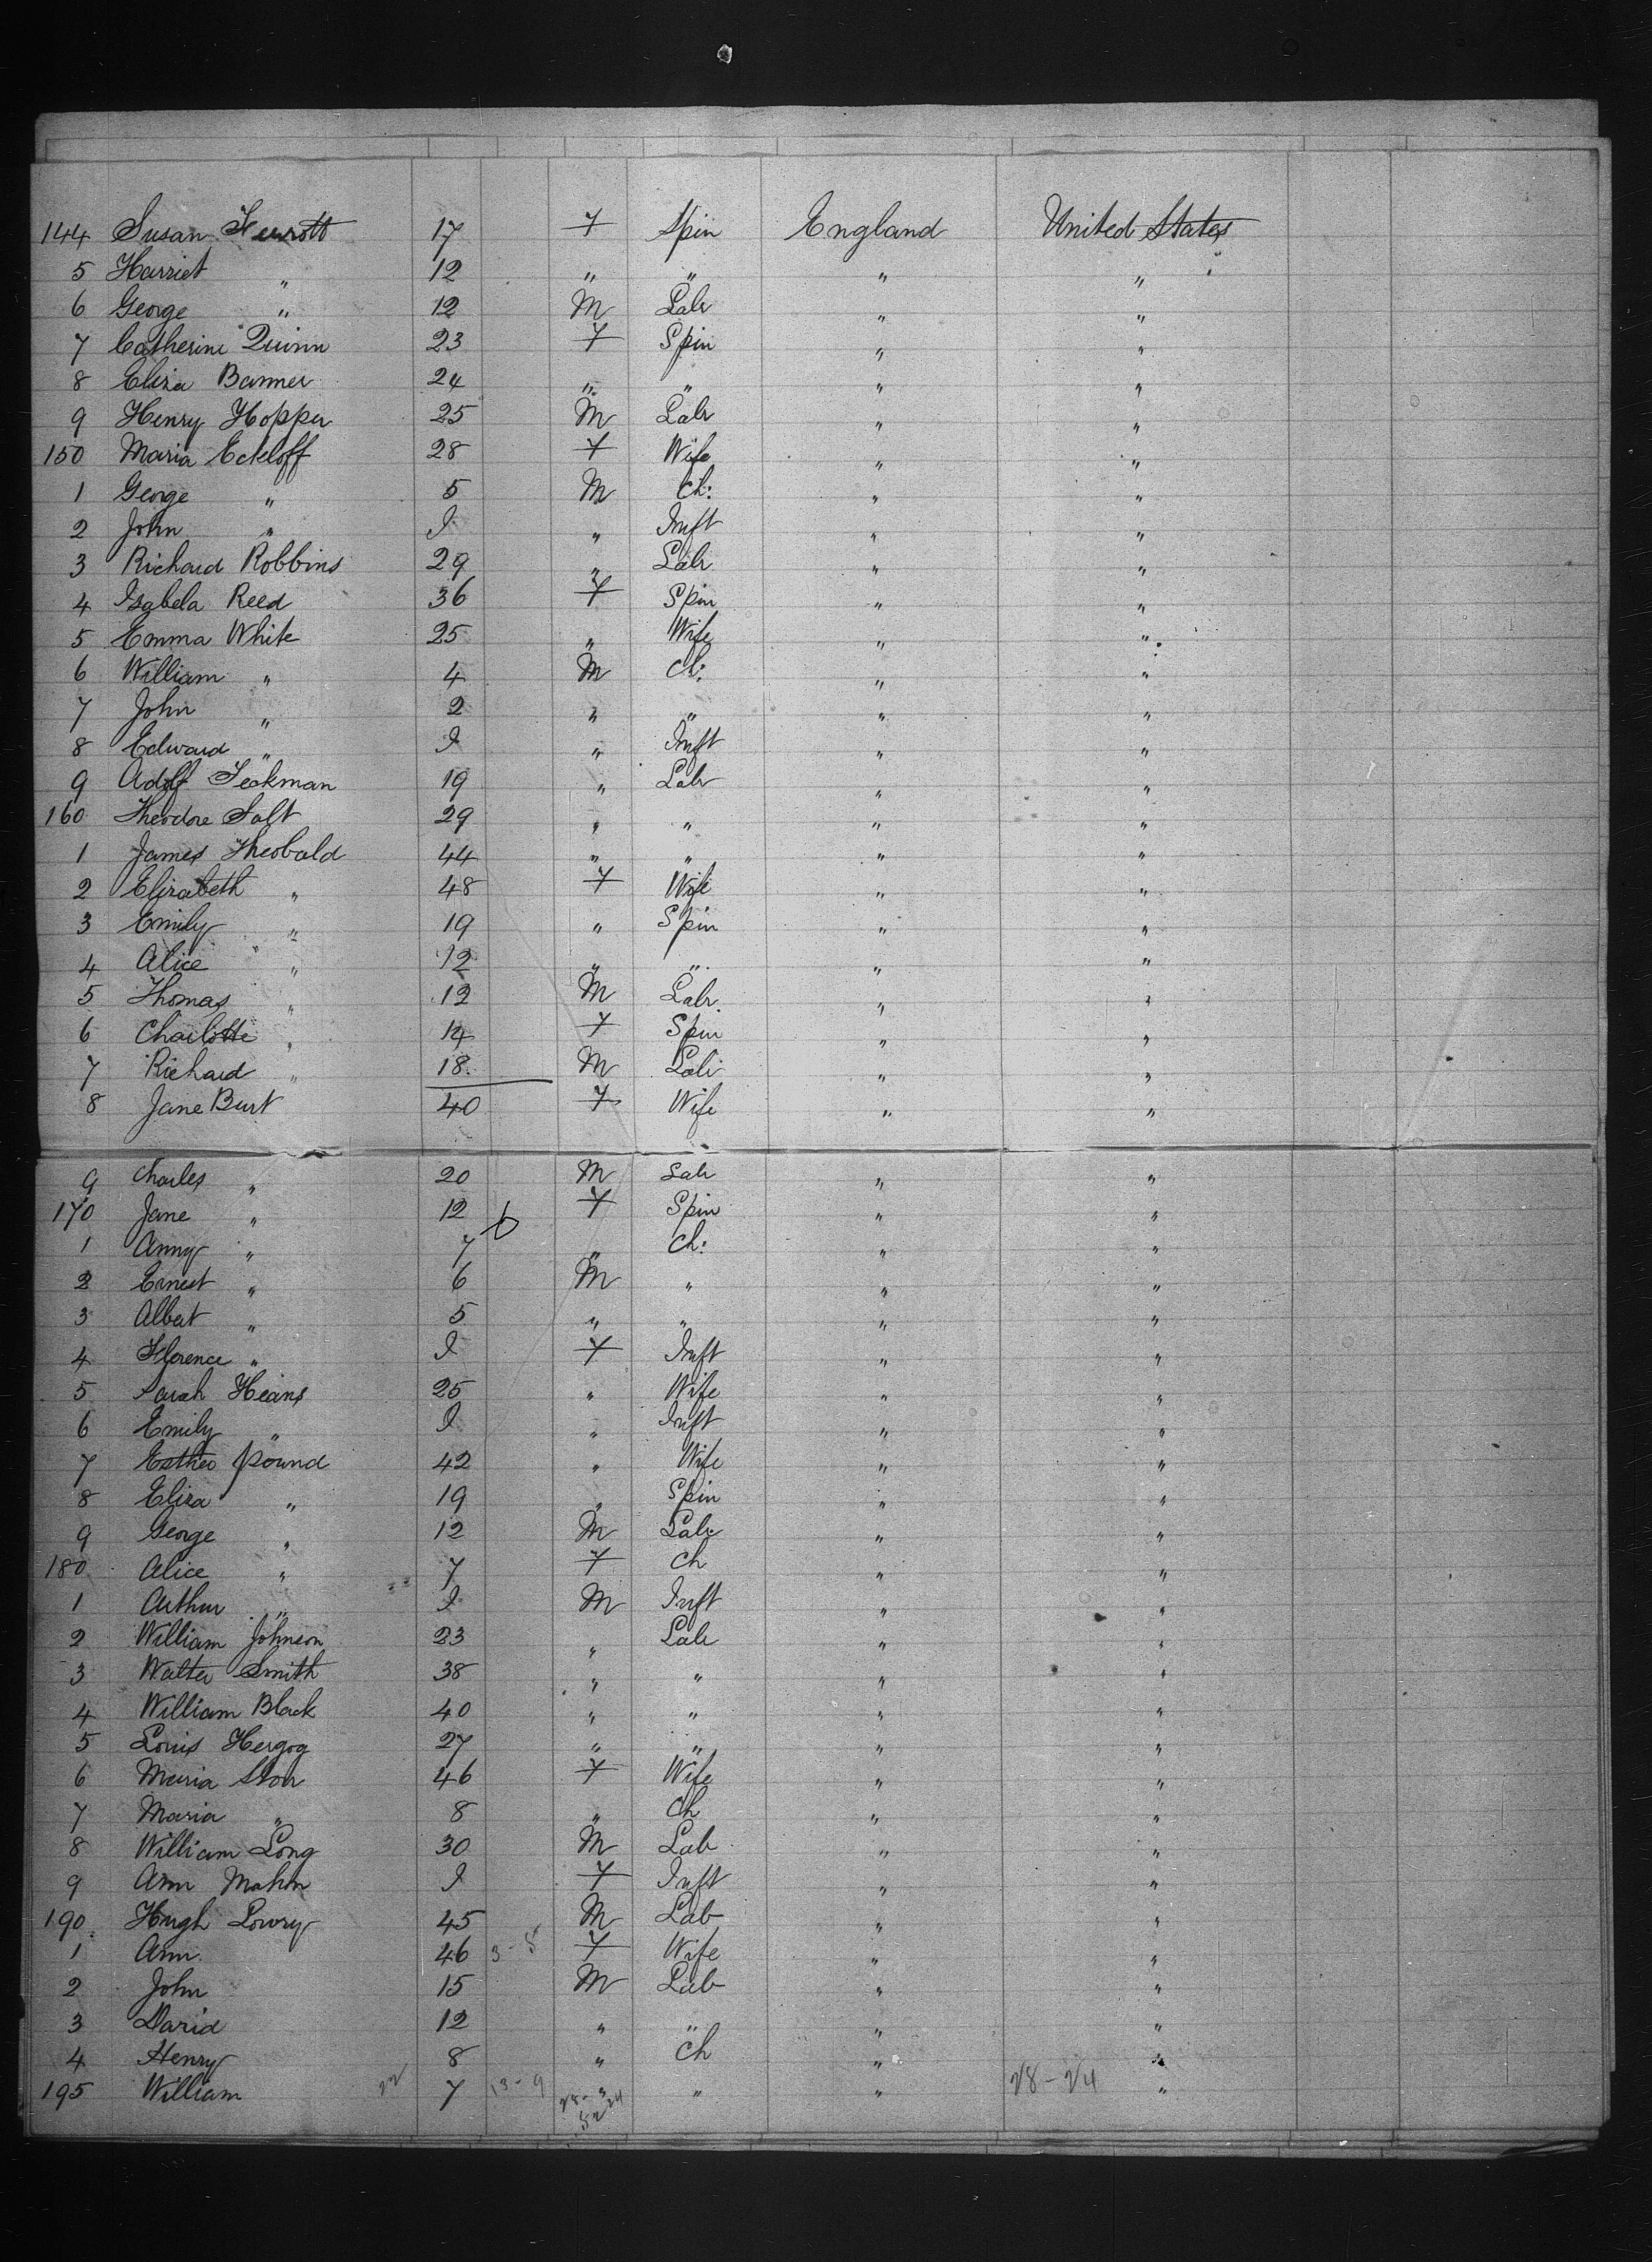 144 Susan 17 F Spin England United States
5 Harriet " 12 " " " "
6 George " 12 M Labr " "
7 Catherine Quinn 23 F Spin " "
8 Eliza Banner 24 " " " "
9 Henry Hopper 25 M Labr " "
150 Maria Eckloff 28 F Wife " "
1 George " 5 M Ch: " "
2 John " I " Inft " "
3 Richard Robbins 29 " Labr " "
4 Isabela Reed 36 F Spin " "
5 Emma White 25 " Wife " "
6 William " 4 M Ch: " "
7 John " 2 " " " "
8 Edward " I " Inft " "
9 Adolf 19 " Labr " "
160 Theodore Salt 29 " " " "
1 James Theobald 44 " " " "
2 Elizabeth " 48 F Wife " "
3 Emily " 19 " Spin " "
4 Alice " 12 " " " "
5 Thomas " 12 M Labr " "
6 Charlotte " 14 F Spin " "
7 Richard " 18 M Labr " "
8 Jane Burt 40 F Wife " "
9 Charles " 20 M Labr " "
170 Jane " 12 F Spin " "
1 Anny " 7 " Ch: " "
2 Ernest " 6 M " " "
3 Albert " 5 " " " "
4 Florence " I F Inft " "
5 Sarah Heans 25 " Wife " "
6 Emily " I " Inft " "
7 Esther Pound 42 " Wife " "
8 Eliza " 19 " Spin " "
9 George " 12 M Labr " "
180 Alice " 7 F Ch " "
1 Arthur " I M Inft " "
2 William Johnson 23 " Labr " "
3 Walter Smith 38 " " " "
4 William Black 40 " " " "
5 Louis Hergog 27 " " " "
6 Maria Storr 46 F Wife " "
7 Maria " 8 " Ch " "
8 William Long 30 M Lab " "
9 Ann Mahon I F Inft " "
190 Hugh Lowry 45 M Lab " "
1 Ann 46 3-5 F Wife " "
2 John 15 M Lab " "
3 David 12 " " " "
4 Henry 8 " Ch " "
195 William 22 7 13-9 " " 28-24 "